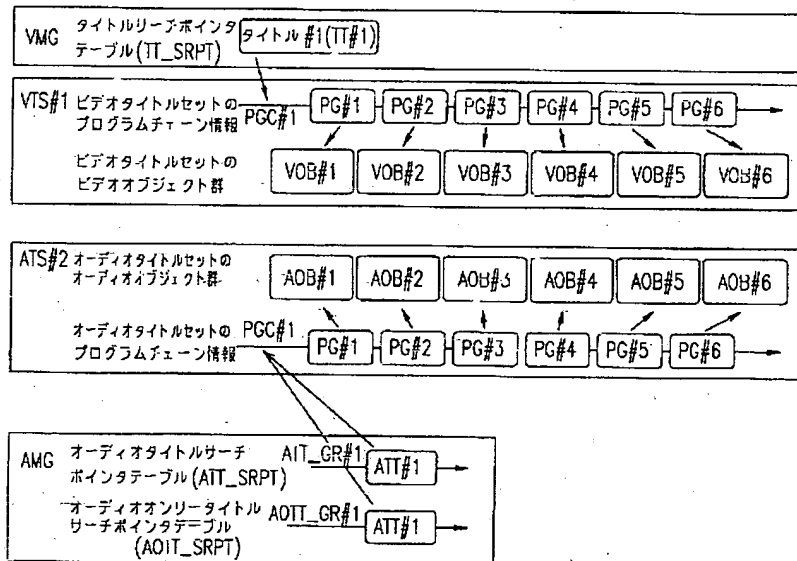 VMG タイトルリーチポインタ
テーブル(TT_SRPT)
タイトル #1(TT#1)
VTS#1 ビデオタイトルセットの
プログラムチェーン情報
PGC#1
PG#1 PG#2 PG#3 PG#4 PG#5 PG#6
ビデオタイトルセットの
ビデオオブジェクト群
VOB#1 VOB#2 VOB#3 VOB#4 VOB#5 VOB#6
ATS#2 オーディオタイトルセットの
オーディオオブジェクト群
AOB#1 AOB#2 AOB#3 AOB#4 AOB#5 AOB#6
オーディオタイトルセットの
プログラムチェーン情報
PGC#1
PG#1 PG#2 PG#3 PG#4 PG#5 PG#6
AMG オーディオタイトルサーチ
ポインタテーブル(ATT_SRPT)
AIT_GR#1
ATT#1
オーディオオンリータイトル
サーチポインタテーブル
(AOIT_SRPT)
AOTT_GR#1
ATT#1